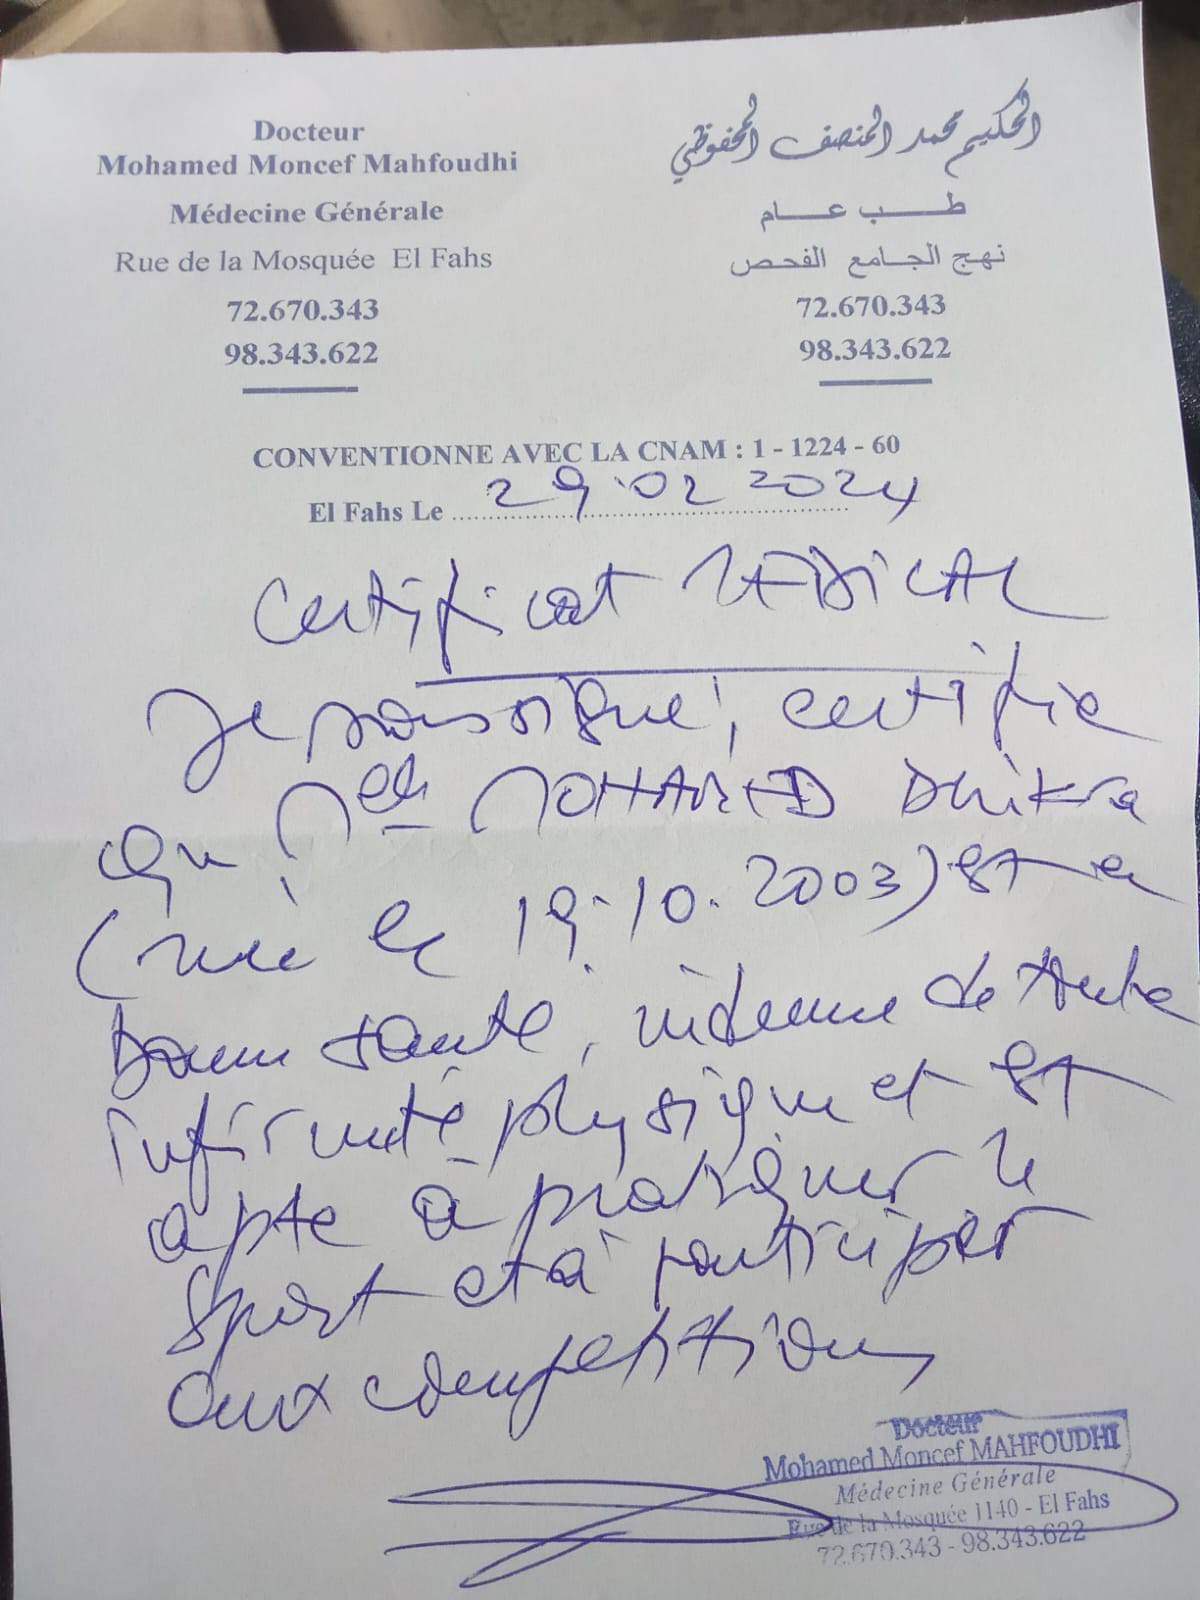 Docteur
Mohamed Moncef Mahfoudhi
Médecine Générale
Rue de la Mosquée El Fahs
72.670.343
98.343.622
الحكيم محمد المنصف المحفوظي
طب عام
نهج الجامع الفحص
72.670.343
98.343.622
CONVENTIONNE AVEC LA CNAM : 1 - 1224 - 60
El Fahs Le 29.02 2024
Certificat MEDICAL
Je soussigné, certifie
que Melle MOHAMED Dhikra
(née le 19.10.2003) est en
bonne santé, indemne de toute
infirmité physique et est
apte à pratiquer le
sport et à participer
aux compétitions
Docteur
Mohamed Moncef MAHFOUDHI
Médecine Générale
Rue de la Mosquée 1140 - El Fahs
72.670.343 - 98.343.622